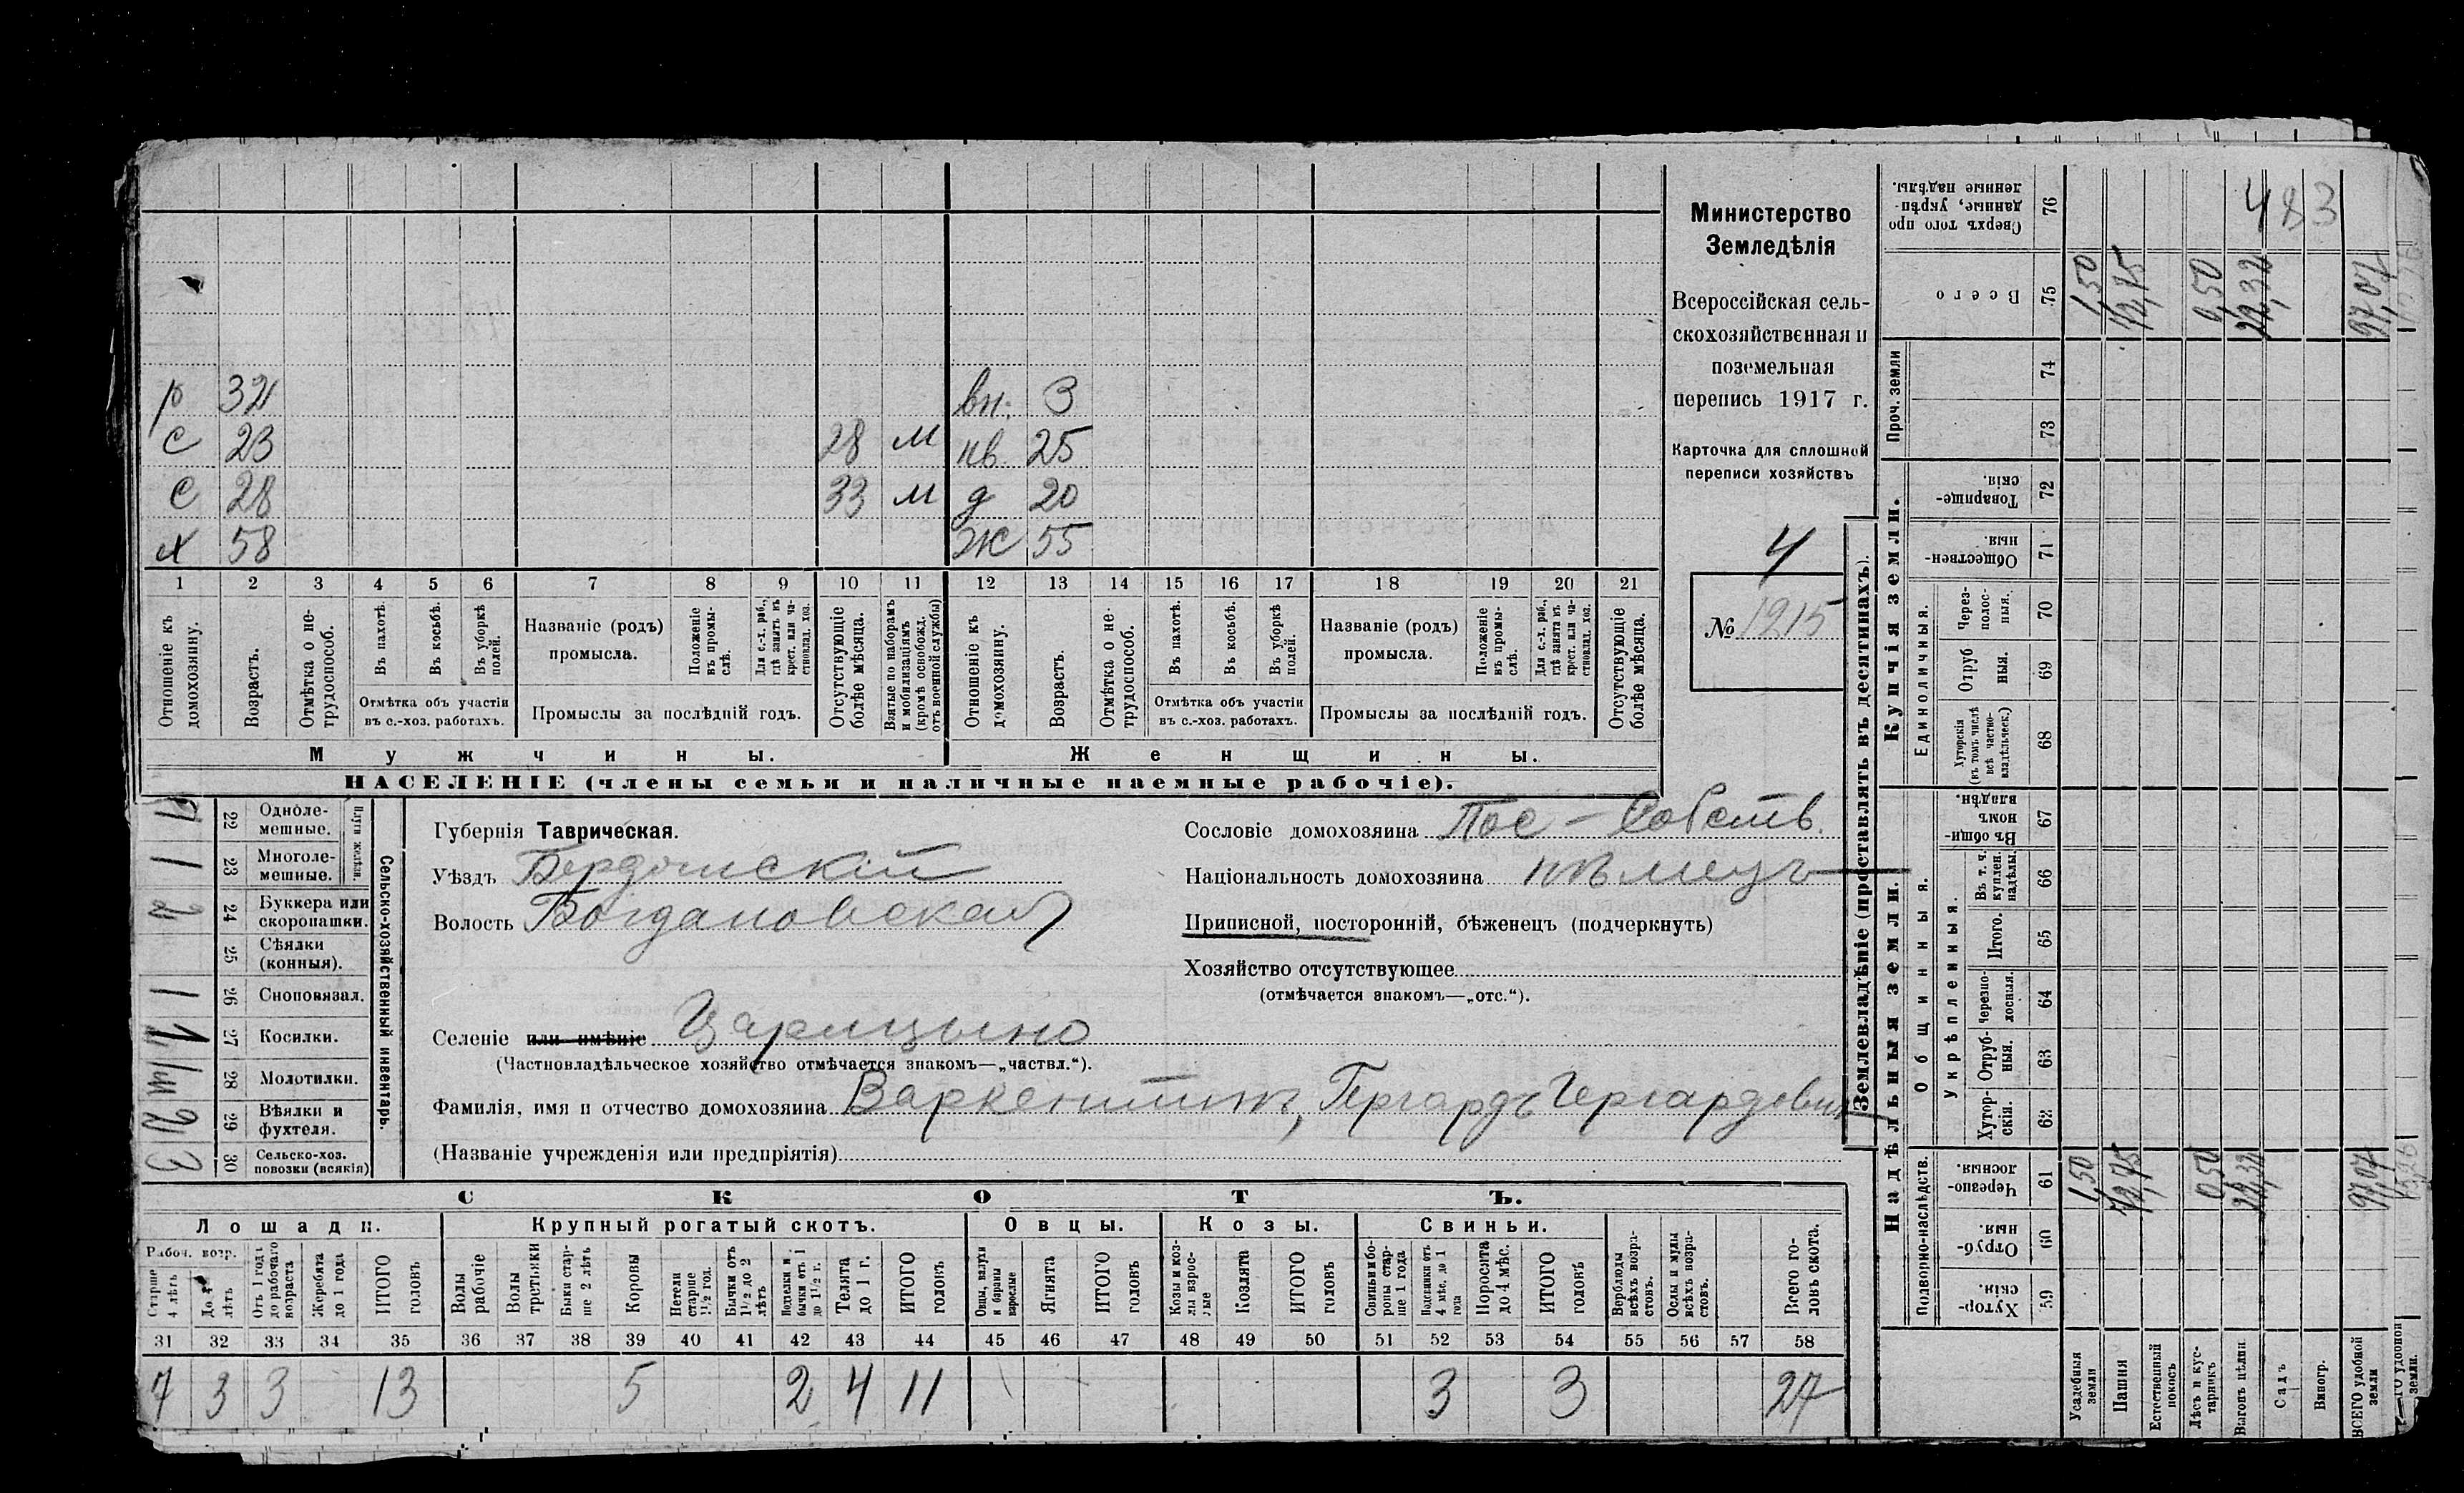 р 32 вн. 3
с 23 28 м нв. 25
с 28 33 м д 20
х 58 ж 55
1 2 3 4 5 6 7 8 9 10 11 12 13 14 15 16 17 18 19 20 21
Отношеніе къ домохозяину.
Возрастъ.
Отмѣтка о не-трудоспособ.
Въ пахотѣ.
Въ косьбѣ.
Въ уборкѣ полей.
Отмѣтка объ участіи въ с.-хоз. работахъ.
Названіе (родъ) промысла.
Положеніе въ промы-слѣ.
Для с.-х. раб., гдѣ занятъ въ крест. или ча-стновлад. хоз.
Промыслы за послѣдній годъ.
Отсутствующіе болѣе мѣсяца.
Взятые по наборамъ и мобилизаціямъ (кромѣ освобожд. отъ военной службы)
Отношеніе къ домохозяину.
Возрастъ.
Отмѣтка о не-трудоспособ.
Въ пахотѣ.
Въ косьбѣ.
Въ уборкѣ полей.
Отмѣтка объ участіи въ с.-хоз. работахъ.
Названіе (родъ) промысла.
Положеніе въ промы-слѣ.
Для с.-х. раб., гдѣ занята въ крест. или ча-стновлад. хоз.
Промыслы за послѣдній годъ.
Отсутствующіе болѣе мѣсяца.
Мужчины. Женщины.
НАСЕЛЕНІЕ (члены семьи и наличные наемные рабочіе).
Министерство
Земледѣлія
Всероссійская сель-
скохозяйственная и
поземельная
перепись 1917 г.
Карточка для сплошной
переписи хозяйствъ
4
№ 1215
22 Одноле-мешные.
23 Многоле-мешные. 1
Плуги желѣзн.
24 Буккера или скоропашки. 2
25 Сѣялки (конныя).
26 Сноповязал. 1
27 Косилки. 1
28 Молотилки.
29 Вѣялки и фухтеля.
30 Сельско-хоз. повозки (всякія) 3
Сельско-хозяйственный инвентарь.
Губернія Таврическая.
Уѣздъ Бердянскій
Волость Богдановская
Селеніе или имѣніе Царицыно
(Частновладѣльческое хозяйство отмѣчается знакомъ—„частвл.“).
Фамилія, имя и отчество домохозяина Варкентинъ, Гергардъ Гергардовичъ
(Названіе учрежденія или предпріятія)
Сословіе домохозяина Пос - Собств.
Національность домохозяина нѣмецъ
Приписной, посторонній, бѣженецъ (подчеркнуть)
Хозяйство отсутствующее
(отмѣчается знакомъ—„отс.“).
СКОТЪ.
Лошади. Крупный рогатый скотъ. Овцы. Козы. Свиньи.
Рабоч. возр.
Старше 4 лѣтъ
До 4 лѣтъ
Отъ 1 года до рабочаго возраста
Жеребята до 1 года
ИТОГО головъ
Волы рабочіе
Волы третьяки
Быки стар-ше 2 лѣтъ
Коровы
Нетели старше 1½ год.
Бычки отъ 1½ до 2 лѣтъ
Подтелки и бычки отъ 1 до 1½ г.
Телята до 1 г.
ИТОГО головъ
Овцы, валухи и бараны взрослые
Ягнята
ИТОГО головъ
Козы и коз-лы взрос-лые
Козлята
ИТОГО головъ
Свиньи и бо-ровы стар-ше 1 года
Подсвинки отъ 4 мѣс. до 1 года
Поросята до 4 мѣс.
ИТОГО головъ
Верблюды всѣхъ возра-стовъ.
Ослы и мулы всѣхъ возра-стовъ.
Всего го-ловъ скота.
31 32 33 34 35 36 37 38 39 40 41 42 43 44 45 46 47 48 49 50 51 52 53 54 55 56 57 58
7 3 3 13 5 2 4 11 3 3 27
Землевладѣніе (проставлять въ десятинахъ).
Надѣльныя земли. Купчія земли. Проч. земли
Подворно-наслѣдств. Общинныя. Единоличныя.
Укрѣпленныя.
Хутор-скія. 59
Отруб-ныя. 60
Черезпо-лосныя. 61
Хутор-скія. 62
Отруб-ныя. 63
Черезпо-лосныя. 64
Итого. 65
Въ т. ч. куплен. надѣлы. 66
Въ общи-номъ владѣн. 67
Хуторскія (въ томъ числѣ всѣ частно-владѣльческ.) 68
Отруб ныя. 69
Через-полос-ныя. 70
Обществен-ныя. 71
Товарище-скія. 72
73
74
Всего 75
Сверхъ того про-данные, укрѣп-ленные надѣлы. 76
483
Усадебныя земли 1,50 1,50
Пашня 72,75 72,75
Естественный покосъ
Лѣсъ и кус-тарникъ 0,50 0,50
Выгонъ цѣлина 22,32 22,32
Садъ
Виногр.
ВСЕГО удобной земли 97,07 97,07